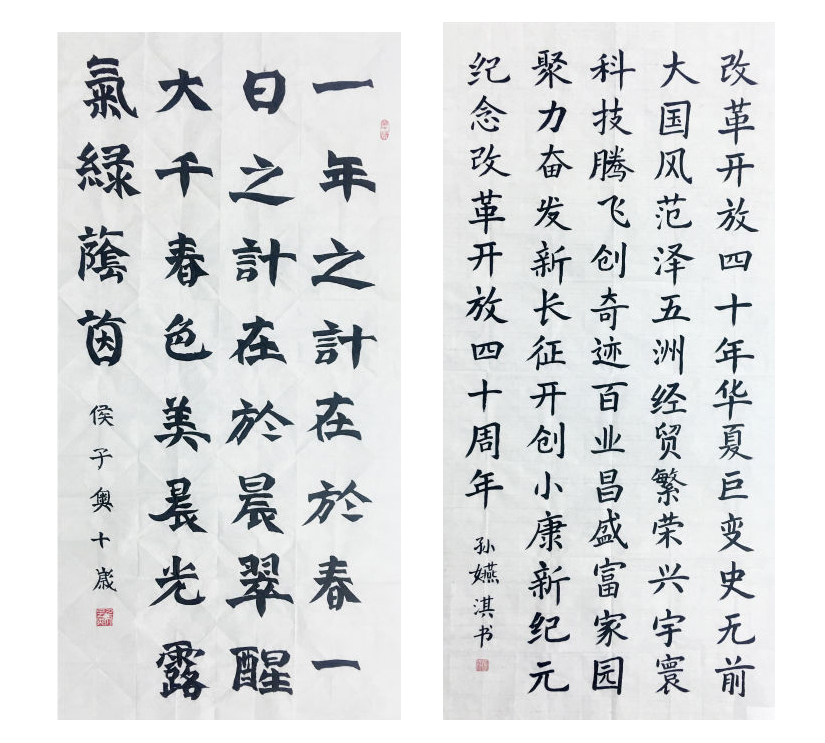 一年之計在於春一
日之計在於晨翠醒
大千春色美晨光露
氣緑蔭茵
侯子奥十歲
改革开放四十年华夏巨变史无前
大国风范泽五洲经贸繁荣兴宇寰
科技腾飞创奇迹百业昌盛富家园
聚力奋发新长征开创小康新纪元
纪念改革开放四十周年
孙嬿淇书